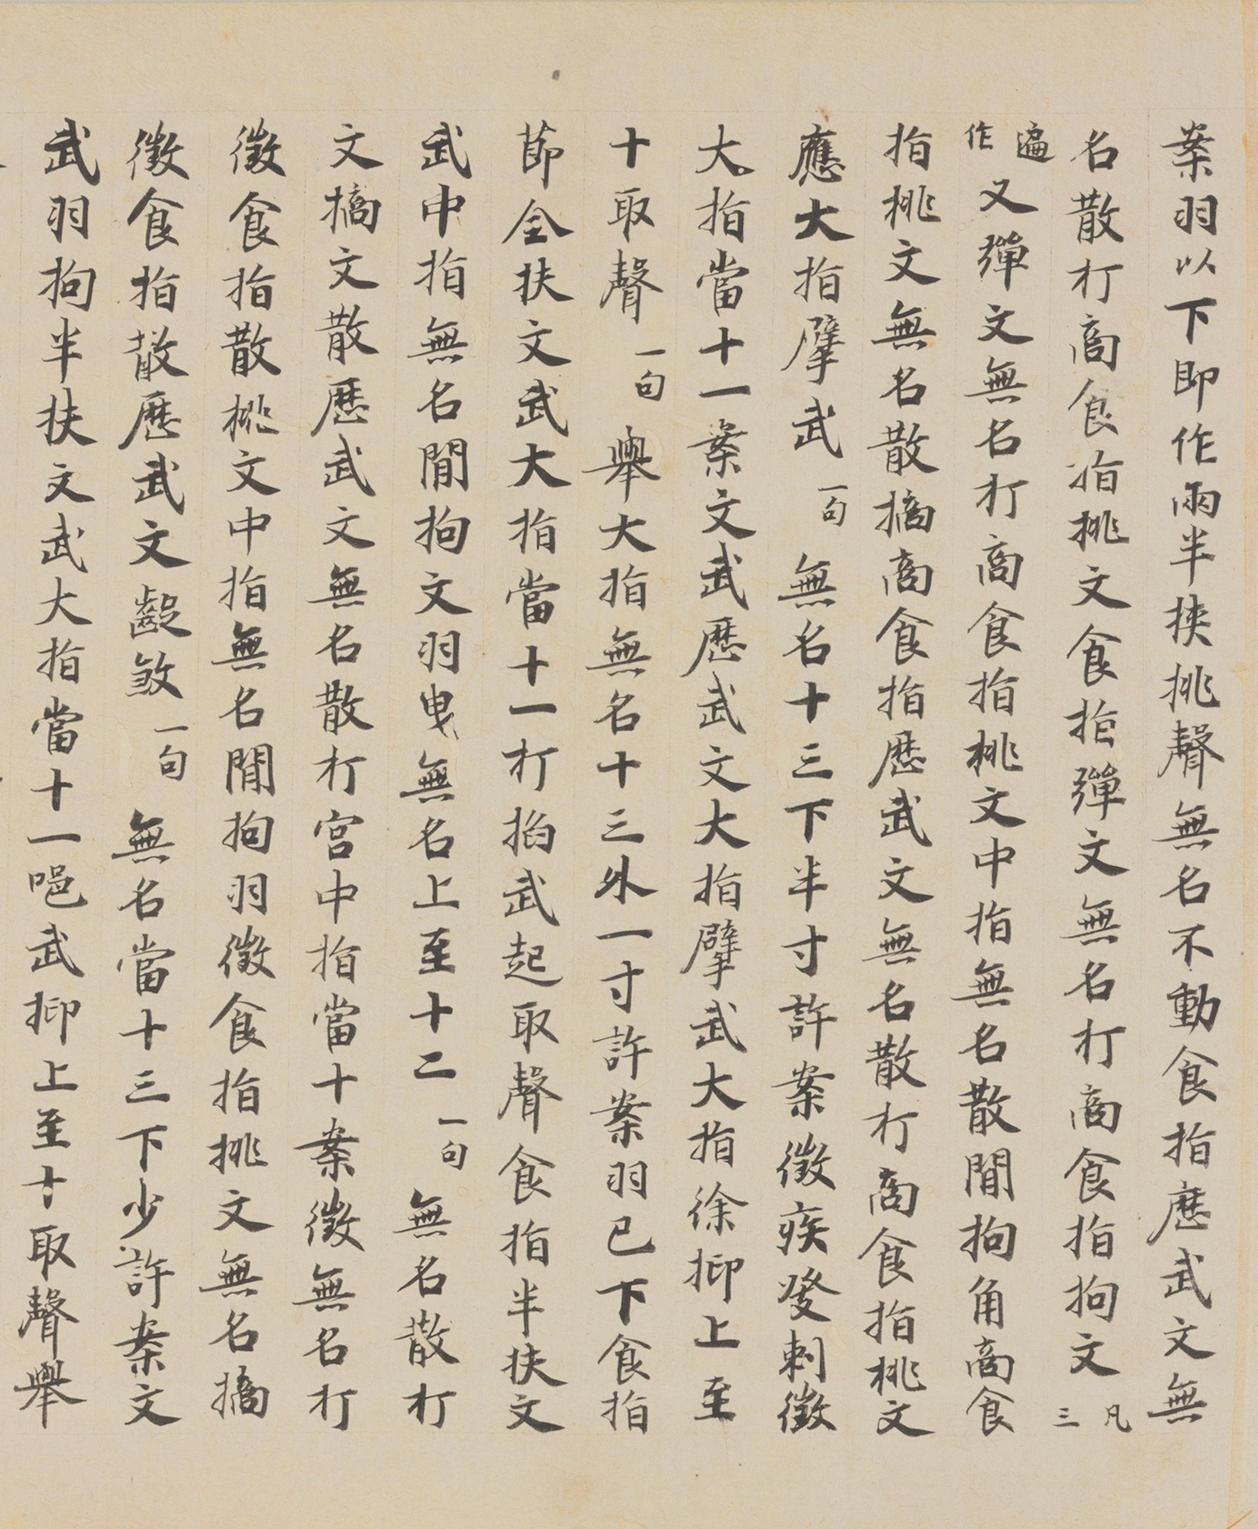 案羽以下即作兩半挾挑聲無名不動食指歷武文無
名散打商食指挑文食指彈文無名打商食指拘文凡三
遍作又彈文無名打商食指挑文中指無名散間拘角商食
指挑文無名散摘商食指歷武文無名散打商食指挑文
應大指擘武一句無名十三下半寸許案徵疾發剌徵
大指當十一案文武歷武文大指擘武大指徐抑上至
十取聲一句舉大指無名十三外一寸許案羽已下食指
節全扶文武大指當十一打掐武起取聲食指半扶文
武中指無名間拘文羽曳無名上至十二一句無名散打
文摘文散歷武文無名散打宮中指當十案徵無名打
徵食指散挑文中指無名間拘羽徵食指挑文無名摘
徵食指散歷武文齪煞一句無名當十三下少許案文
武羽拘半扶文武大指當十一唈武抑上至十取聲舉